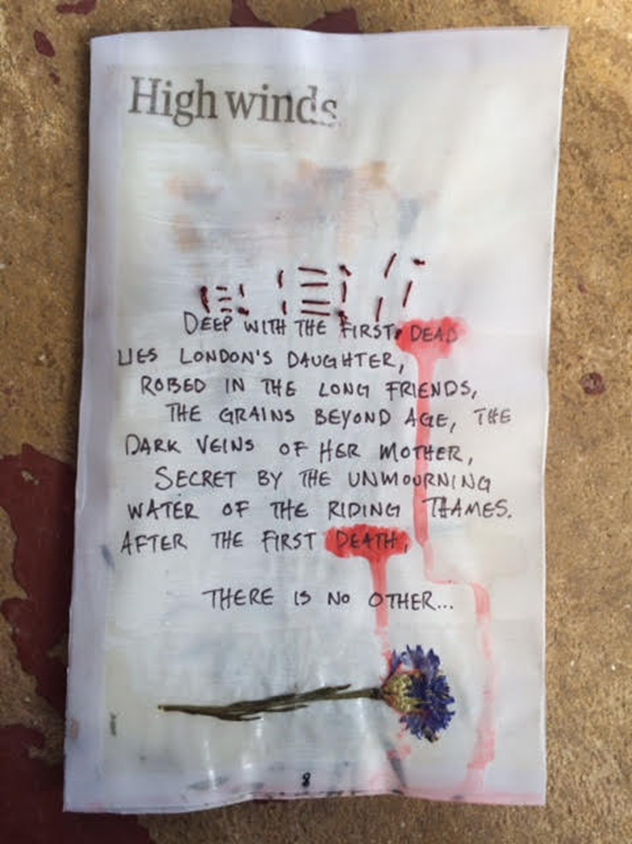 High winds
DEEP WITH THE FIRST DEAD
LIES LONDON'S DAUGHTER,
ROBED IN THE LONG FRIENDS,
THE GRAINS BEYOND AGE, THE
DARK VEINS OF HER MOTHER,
SECRET BY THE UNMOURNING
WATER OF THE RIDING THAMES.
AFTER THE FIRST DEATH,
THERE IS NO OTHER...
8